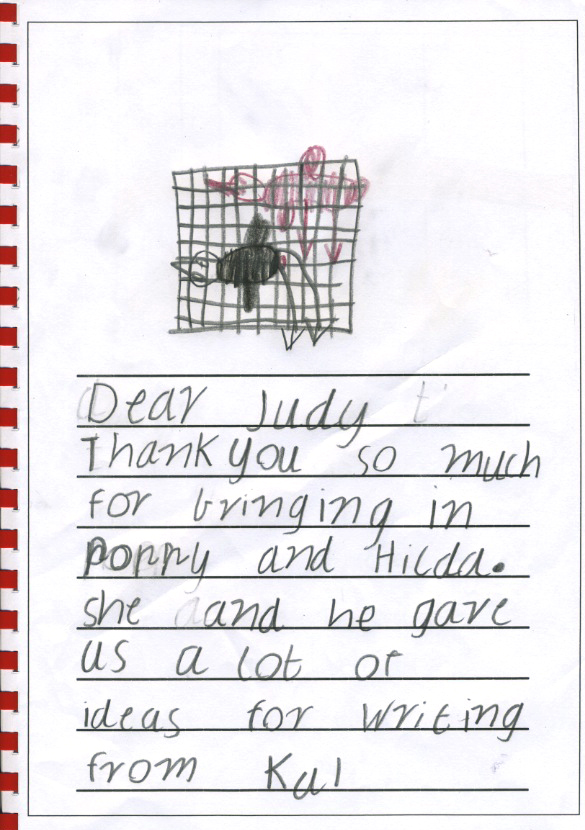 Dear Judy
Thankyou so much
for bringing in
poppy and Hilda.
she and he gave
us a lot of
ideas for writing
from Kal